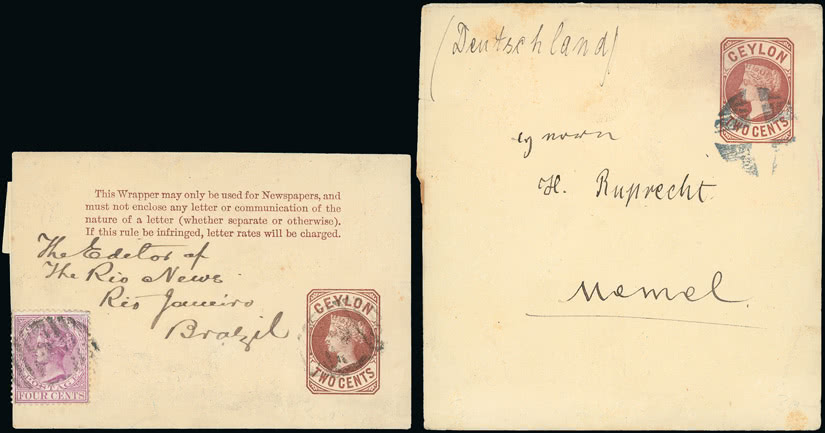 This Wrapper may only be used for Newspapers, and
must not enclose any letter or communication of the
nature of a letter (whether separate or otherwise).
If this rule be infringed, letter rates will be charged.
The Editor of
The Rio News
Rio Janeiro
Brazil
CEYLON
TWO CENTS
POSTAGE
FOUR CENTS
(Deutschland)
CEYLON
TWO CENTS
H. Ruprecht
Memel.